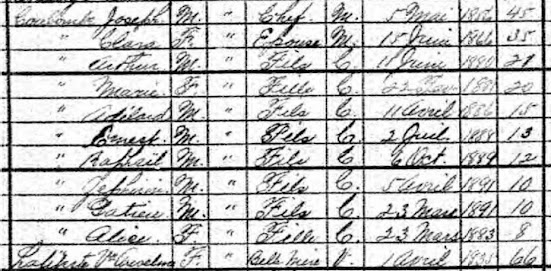 Joseph M. " Chef M. 5 Mai 1856 45
" Clara F. " Epouse M. 15 Juin 1866 35
" Arthur M. " Fils C. 11 Juin 1880 21
" Marie F. " Fille C. 22 1881 20
" Adélard M. " Fils C. 11 Avril 1886 15
" Ernest M. " Fils C. 2 Juil 1888 13
" Raphael M. " Fils C. 6 Oct. 1889 12
" M. " Fils C. 5 Avril 1891 10
" M. " Fils C. 23 Mars 1891 10
" Alice F. " Fille C. 23 Mars 1883 8
Laliberté F " Belle Mère V. 1 Avril 1835 66